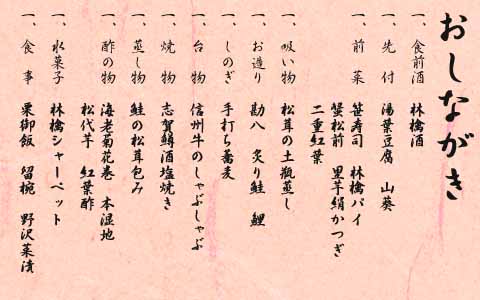 おしながき
一、食前酒 林檎酒
一、先付 湯葉豆腐 山葵
一、前菜 笹寿司 林檎パイ
蟹松前 里芋絹かつぎ
二重紅葉
一、吸い物 松茸の土瓶蒸し
一、お造り 勘八 炙り鮭 鯉
一、しのぎ 手打ち蕎麦
一、台物 信州牛のしゃぶしゃぶ
一、焼物 志賀鱒酒塩焼き
一、蒸し物 鮭の松茸包み
一、酢の物 海老菊花巻 本湿地
松代芋 紅葉酢
一、水菓子 林檎シャーベット
一、食事 栗御飯 留椀 野沢菜漬